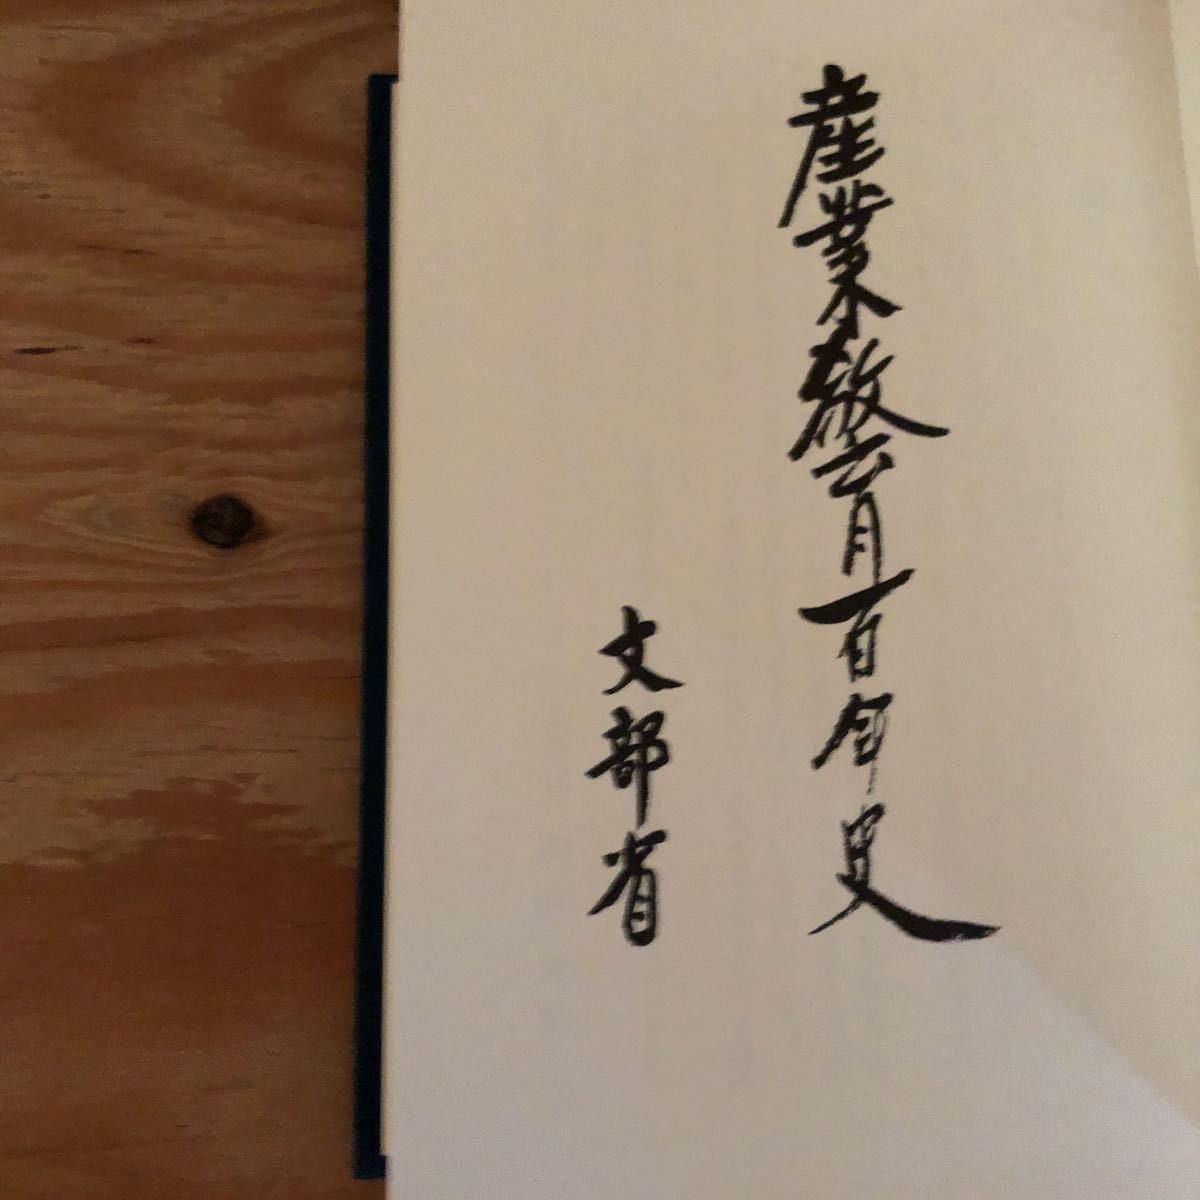 産業教育百年史
文部省